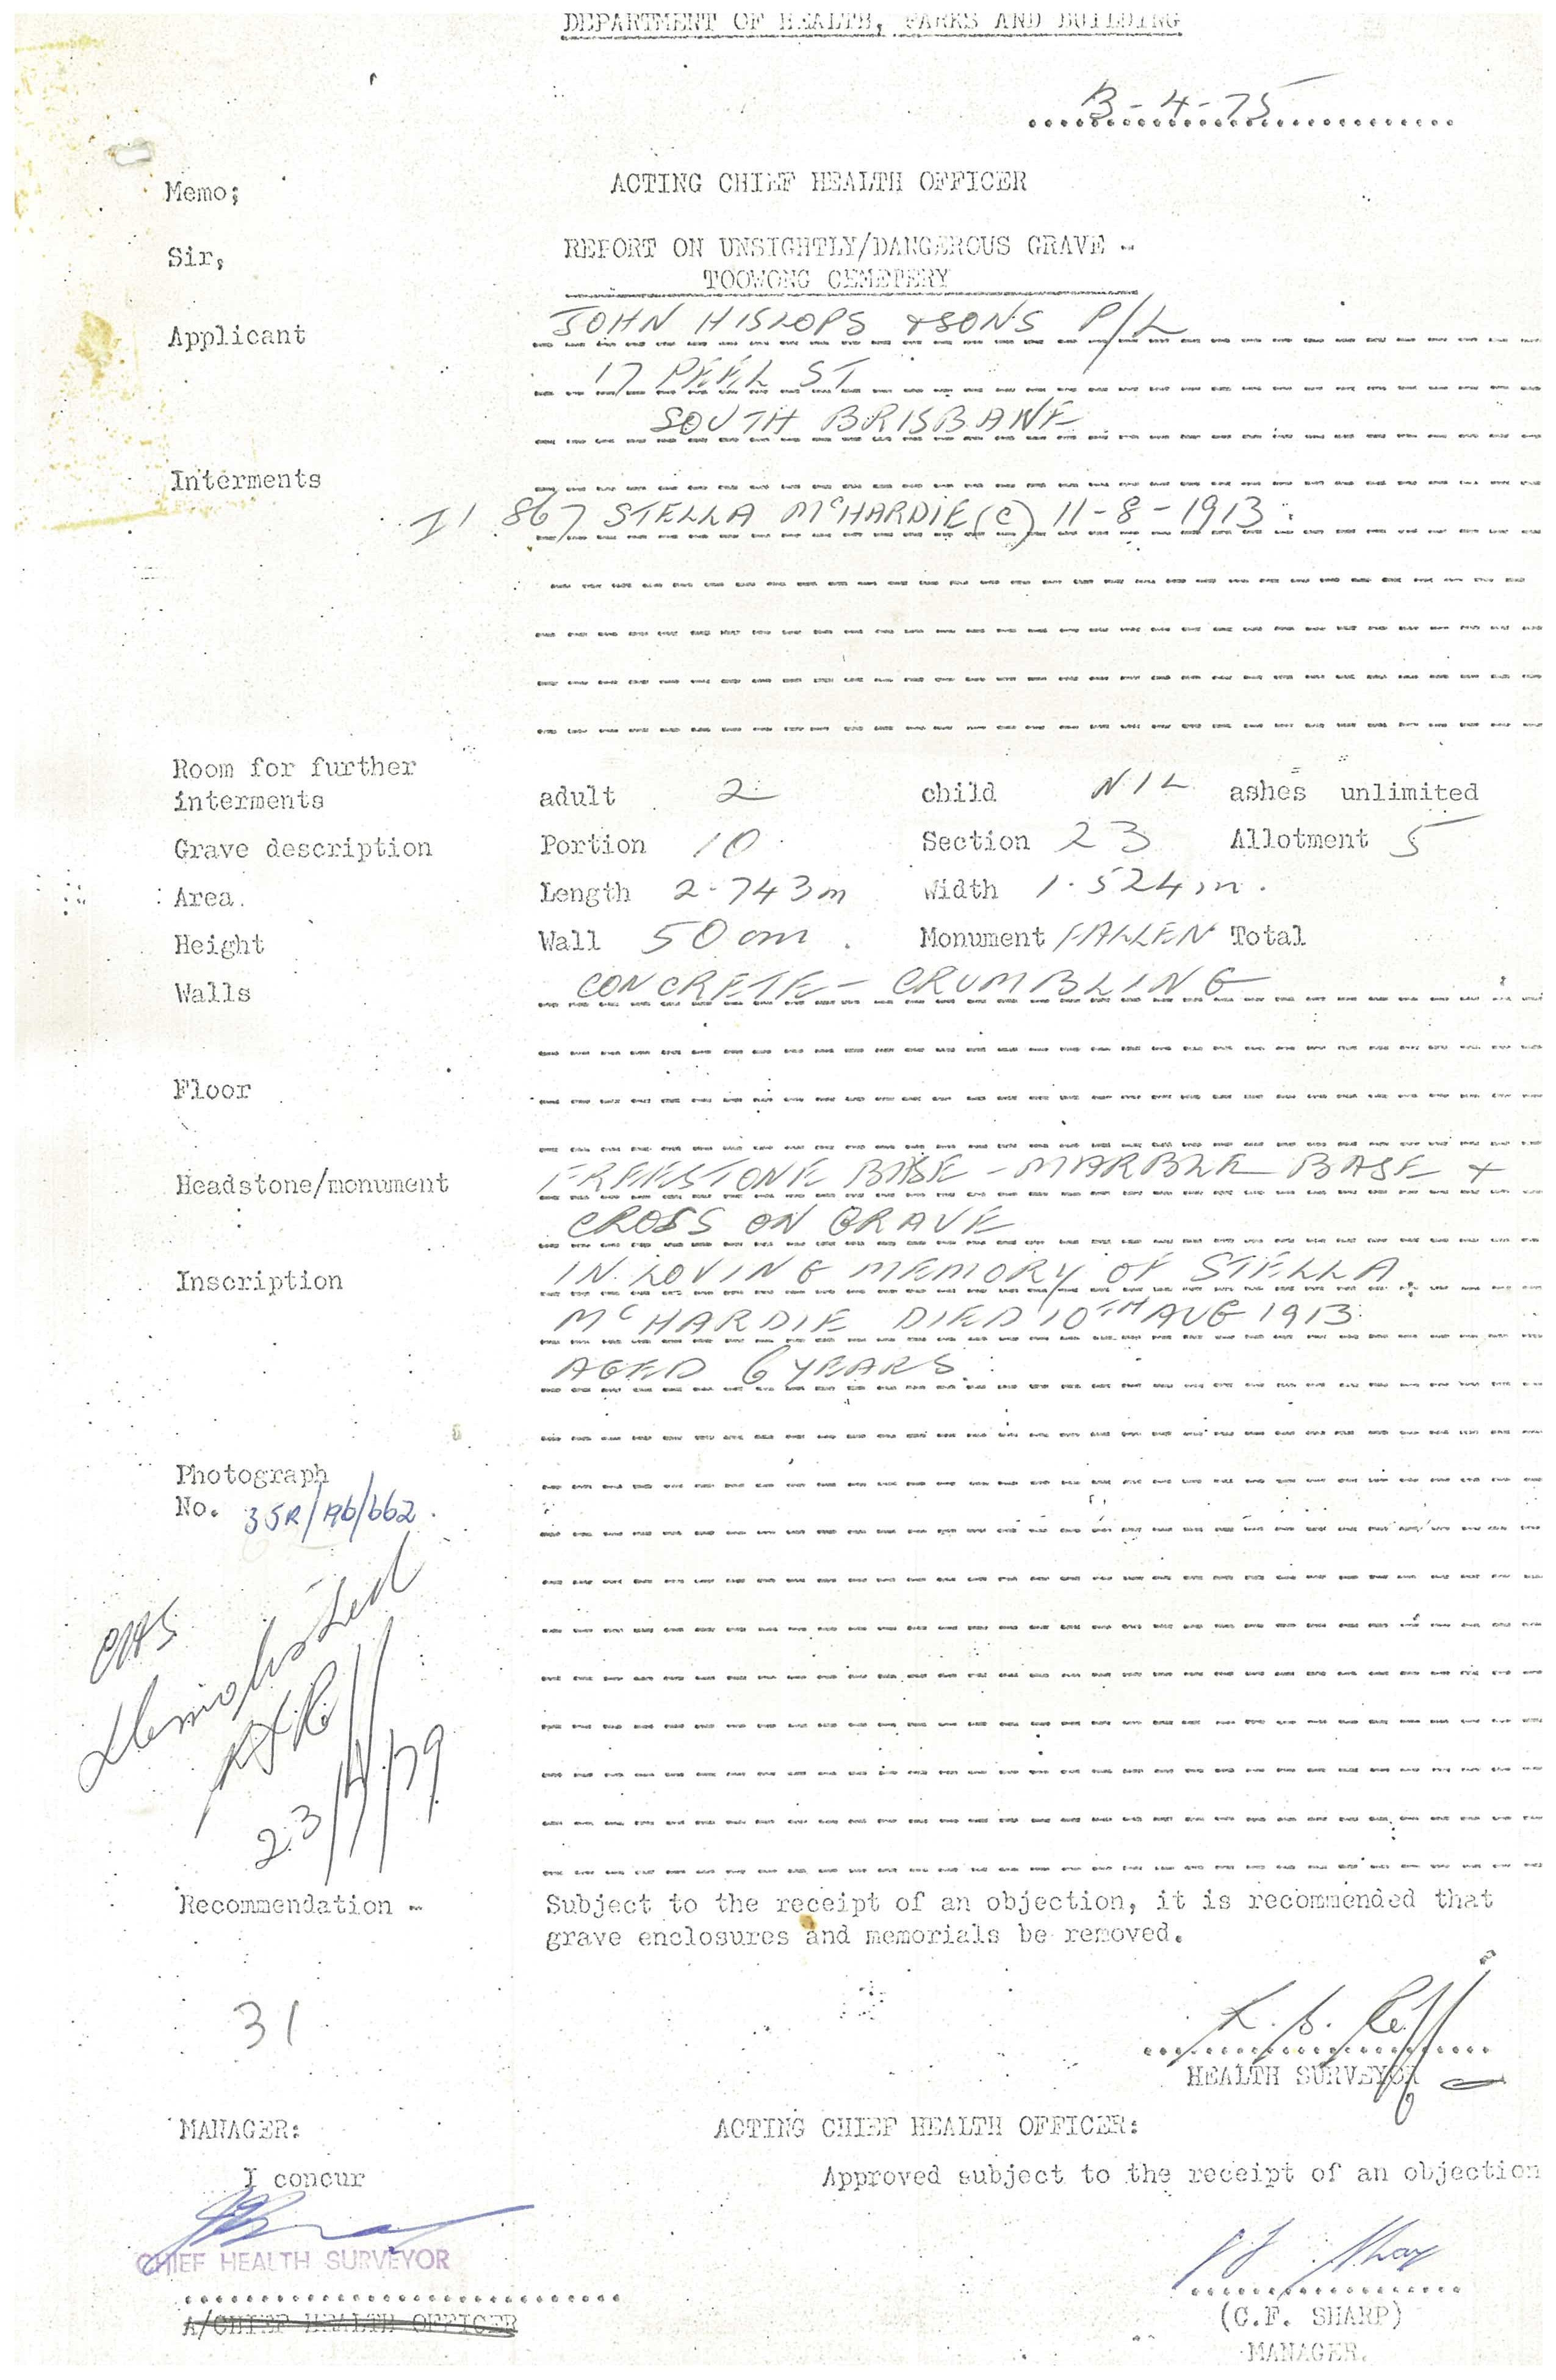 DEPARTMENT OF HEALTH, PARKS AND BUILDING
3-4-75
Memo; ACTING CHIEF HEALTH OFFICER
Sir, REPORT ON UNSIGHTLY/DANGEROUS GRAVE -
TOOWONG CEMETERY
Applicant JOHN HISLOPS & SONS P/L
17 PEEL ST
SOUTH BRISBANE
Interments
867 STELLA McHARDIE (C) 11-8-1913
Room for further
interments adult 2 child NIL ashes unlimited
Grave description Portion 10 Section 23 Allotment 5
Area Length 2.743m Width 1.524m.
Height Wall 50cm. Monument FALLEN Total
Walls CONCRETE - CRUMBLING
Floor
Headstone/monument FREESTONE BASE - MARBLE BASE +
CROSS ON GRAVE
Inscription IN LOVING MEMORY OF STELLA
McHARDIE DIED 10TH AUG 1913
AGED 6 YEARS
Photograph
No. 35R/
demolished
23/4/79
Recommendation - Subject to the receipt of an objection, it is recommended that
grave enclosures and memorials be removed.
31
HEALTH SURVEYOR
MANAGER: ACTING CHIEF HEALTH OFFICER:
I concur Approved subject to the receipt of an objection
CHIEF HEALTH SURVEYOR
A/CHIEF HEALTH OFFICER
(C.F. SHARP)
MANAGER.